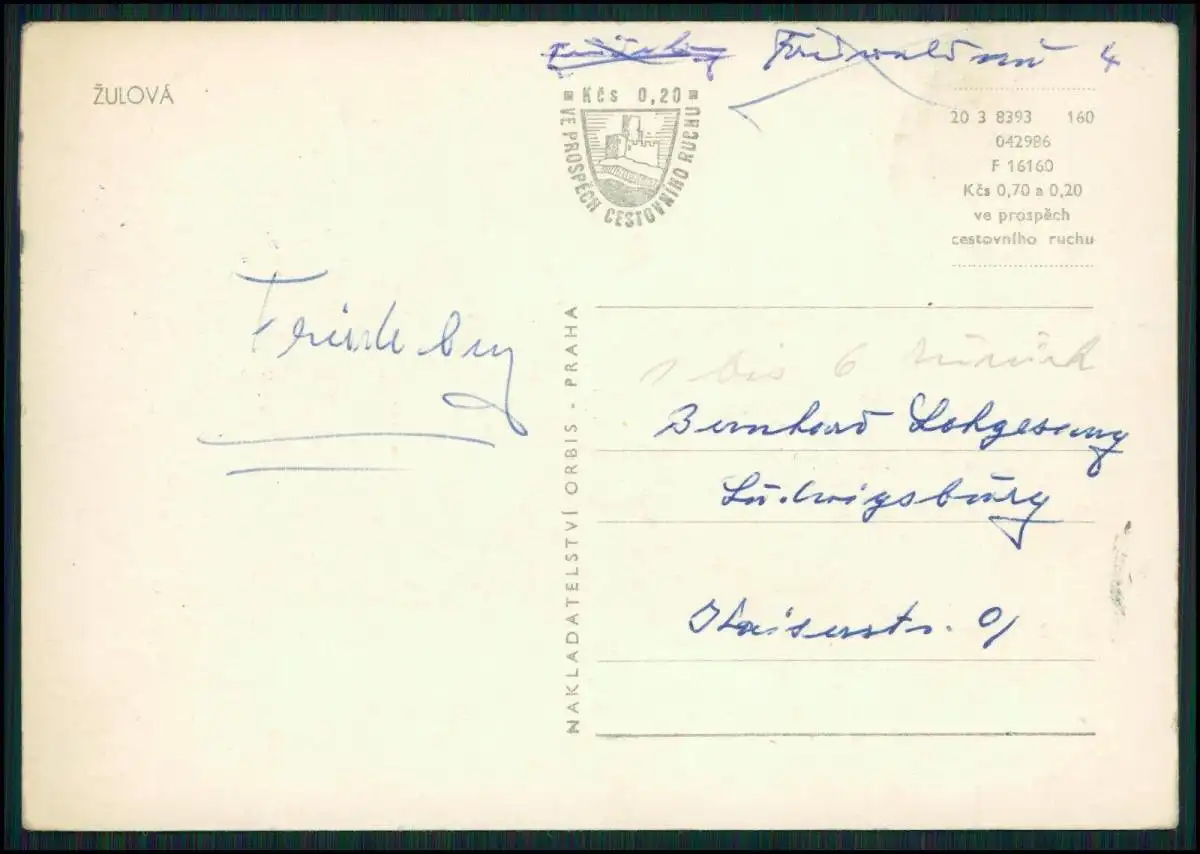 Friedeberg
ŽULOVÁ
Kčs 0,20
VE PROSPĚCH CESTOVNÍHO RUCHU
20 3 8393 160
042986
F 16160
Kčs 0,70 a 0,20
ve prospěch
cestovního ruchu
NAKLADATELSTVÍ ORBIS - PRAHA
1 bis 6 zurück
Bernhard
Ludwigsburg
Kaiserstr. 9